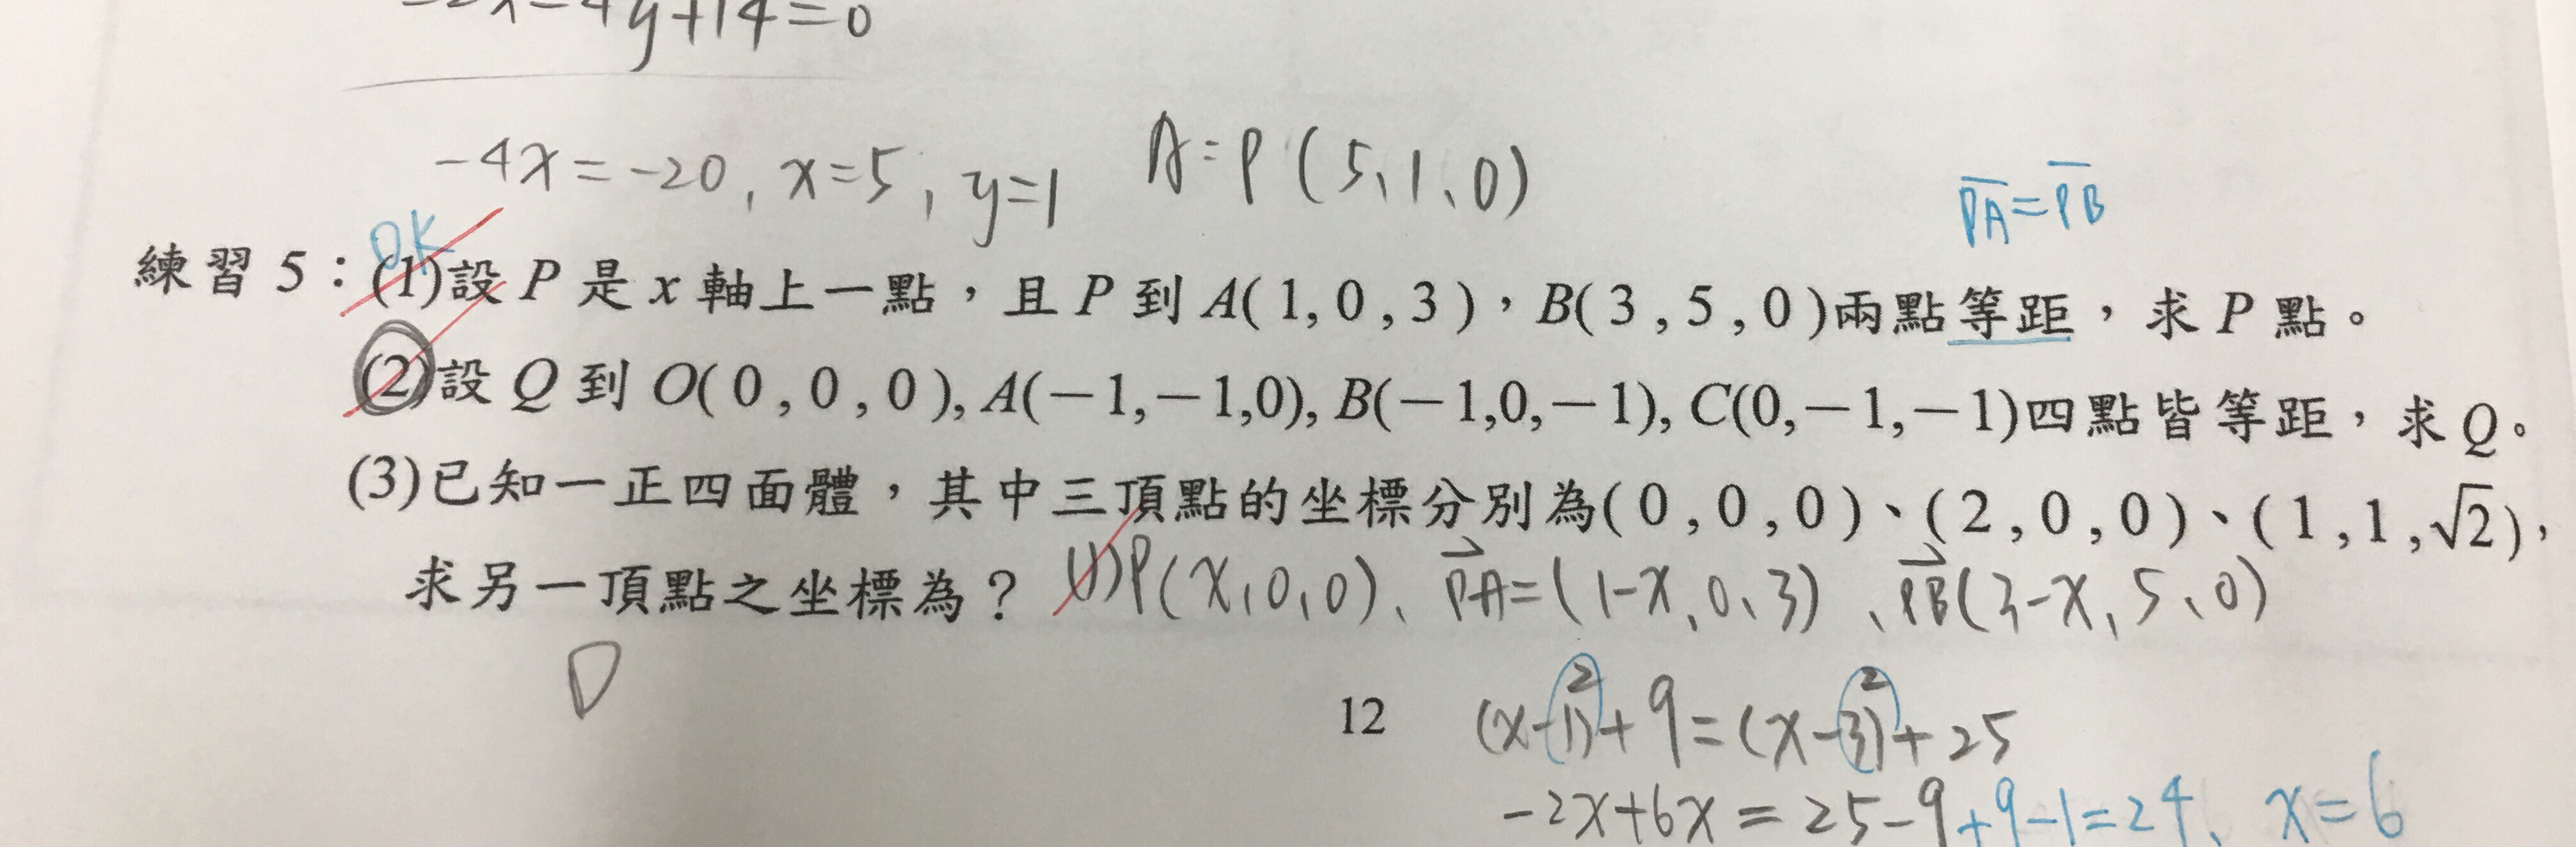 -2x-4y+14=0
-4x=-20, x=5, y=1 A=P(5、1、0)
PA=PB
OK
練習 5：(1)設 P 是 x 軸上一點，且 P 到 A( 1, 0 , 3 )，B( 3 , 5 , 0 )兩點等距，求 P 點。
(2)設 Q 到 O( 0 , 0 , 0 ), A(－1,－1,0), B(－1,0,－1), C(0,－1,－1)四點皆等距，求 Q。
(3)已知一正四面體，其中三頂點的坐標分別為( 0 , 0 , 0 )、( 2 , 0 , 0 )、( 1 , 1 , √2 )，
求另一頂點之坐標為？ (1)P(x,0,0)、PA=(1-x、0、3)、PB(3-x、5、0)
D
12 (x-1)²+9=(x-3)²+25
-2x+6x=25-9+9-1=24、x=6